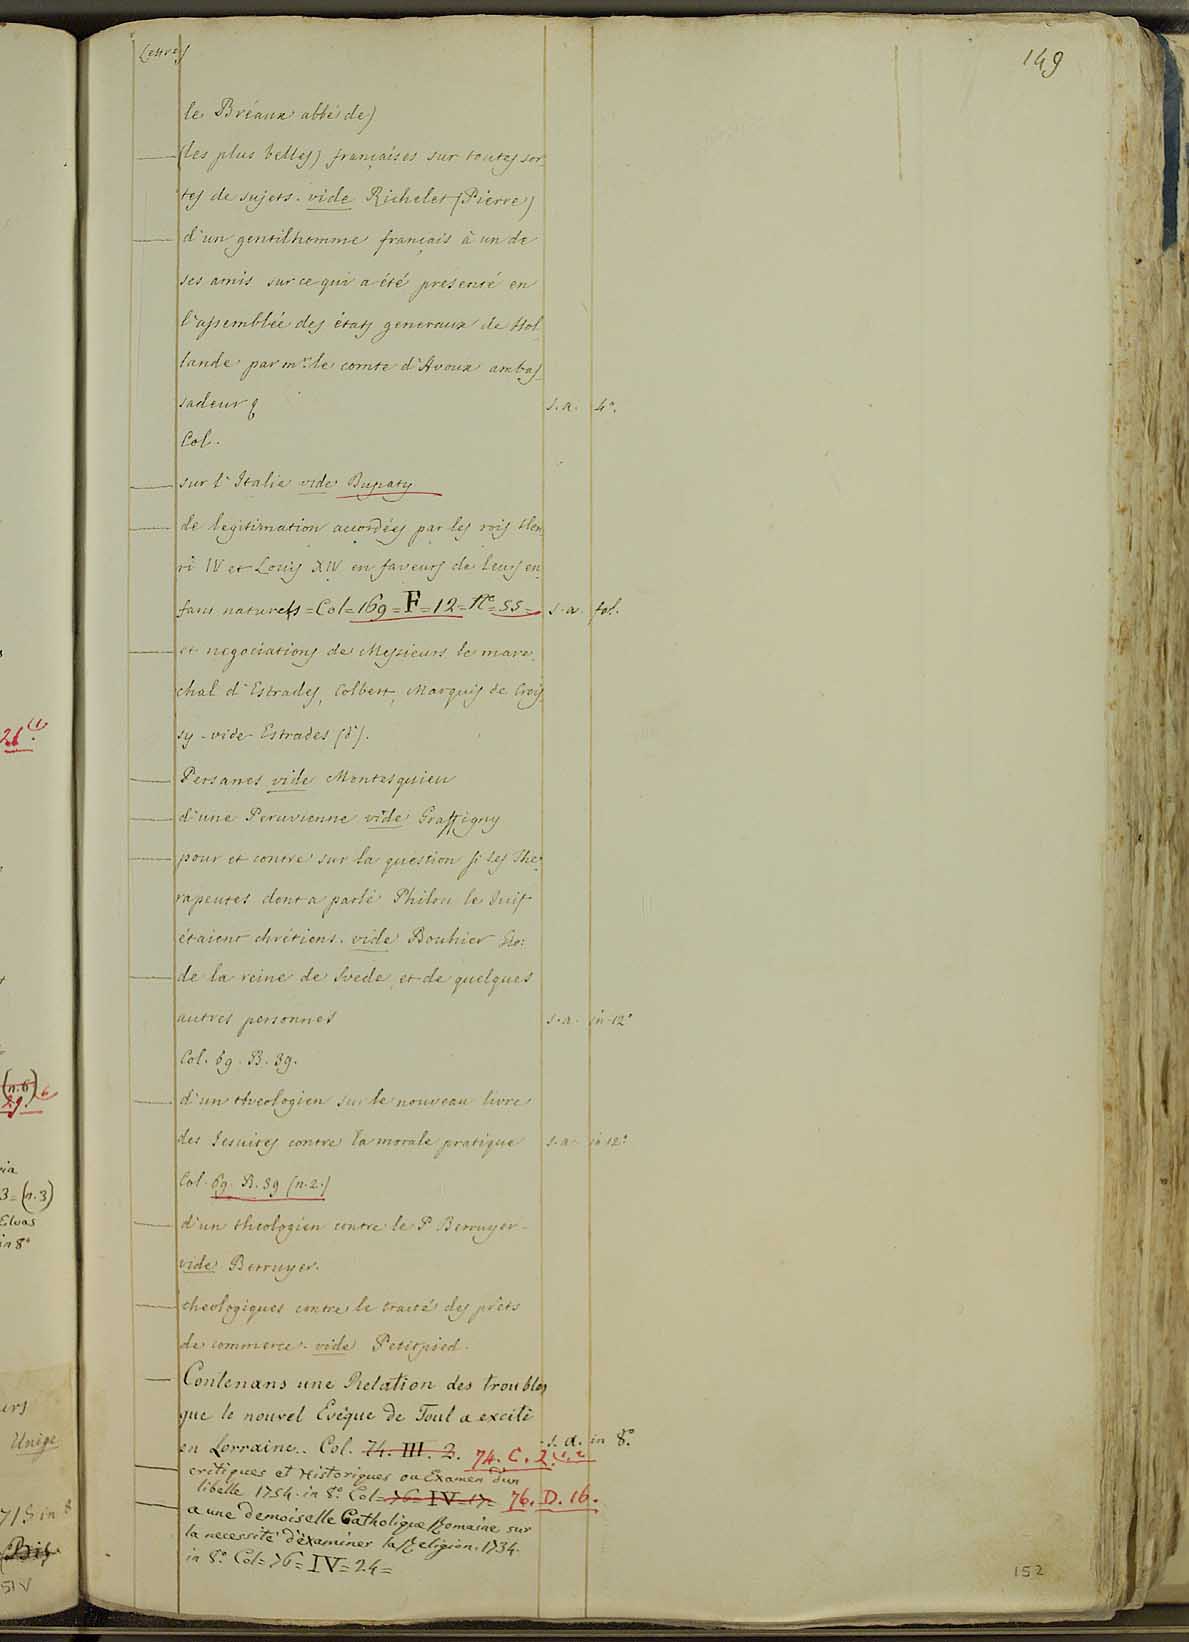 Lettres
149
le Bréaux abbé de)
— (les plus belles) françaises sur toutes sor
tes de sujets. vide Richelet (Pierre)
— d'un gentilhomme français à un de
ses amis sur ce qui a été présenté en
l'assemblée des états generaux de Hol
lande par mr. le comte d'Avoux ambas
sadeur s.a. 4°.
Col.
— sur l'Italie vide Dupaty
— de legitimation accordées par les rois Hen
ri IV et Louis XIV en faveurs de leurs en
fans naturels = Col = 169 = F = 12 = N° = 55 = s.a. fol.
— et negociations de Messieurs le mare
chal d'Estrades, Colbert, Marquis de Crois
sy - vide - Estrades (d').
— Persanes vide Montesquieu
— d'une Peruvienne vide Graffigny
— pour et contre sur la question si les The
rapeutes dont a parlé Philon le Juif
étaient chrétiens. vide Bouhier
— de la reine de Svede et de quelques
autres personnes s.a. in-12°
Col. 69. B. 39.
— d'un theologien sur le nouveau livre
des Jesuites contre la morale pratique s.a. in 12°
Col. 69. B. 39 (n.2.)
— d'un theologien contre le P Berruyer.
vide Berruyer.
— theologiques contre le traité des prêts
de commerce. vide Petitpied.
— Contenans une Relation des troubles
que le nouvel Evêque de Toul a excité
en Lorraine. Col. 74. III. 2. 74. C. 2. s. a. in 8°
— critiques et Historiques ou Examen d'un
libelle 1754. in 8° Col = 76 = IV = 17 = 76. D. 16.
— a une demoiselle Catholique Romaine sur
la necessité d'éxaminer la Religion. 1734.
in 8° Col = 76 = IV = 24 =
152